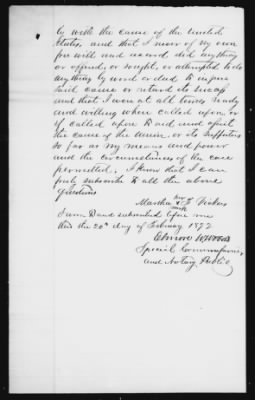 by with the cause of the United
States, and that I never of my own
free will and accord did anything
or offered, or sought, or attempted to do
anything by word or deed to injure
said cause or retard its success
and that I was at all times ready
and willing when called upon, or
if called upon to aid and assist
the cause of the Union, or its supporters
so far as my means and power
and the circumstances of the case
permitted. I know that I can
truly subscribe to all the above
questions
Martha her x mark Vickers
Sworn to and subscribed before me
this the 20th day of February 1872
Special Commissioner,
and Notary Public